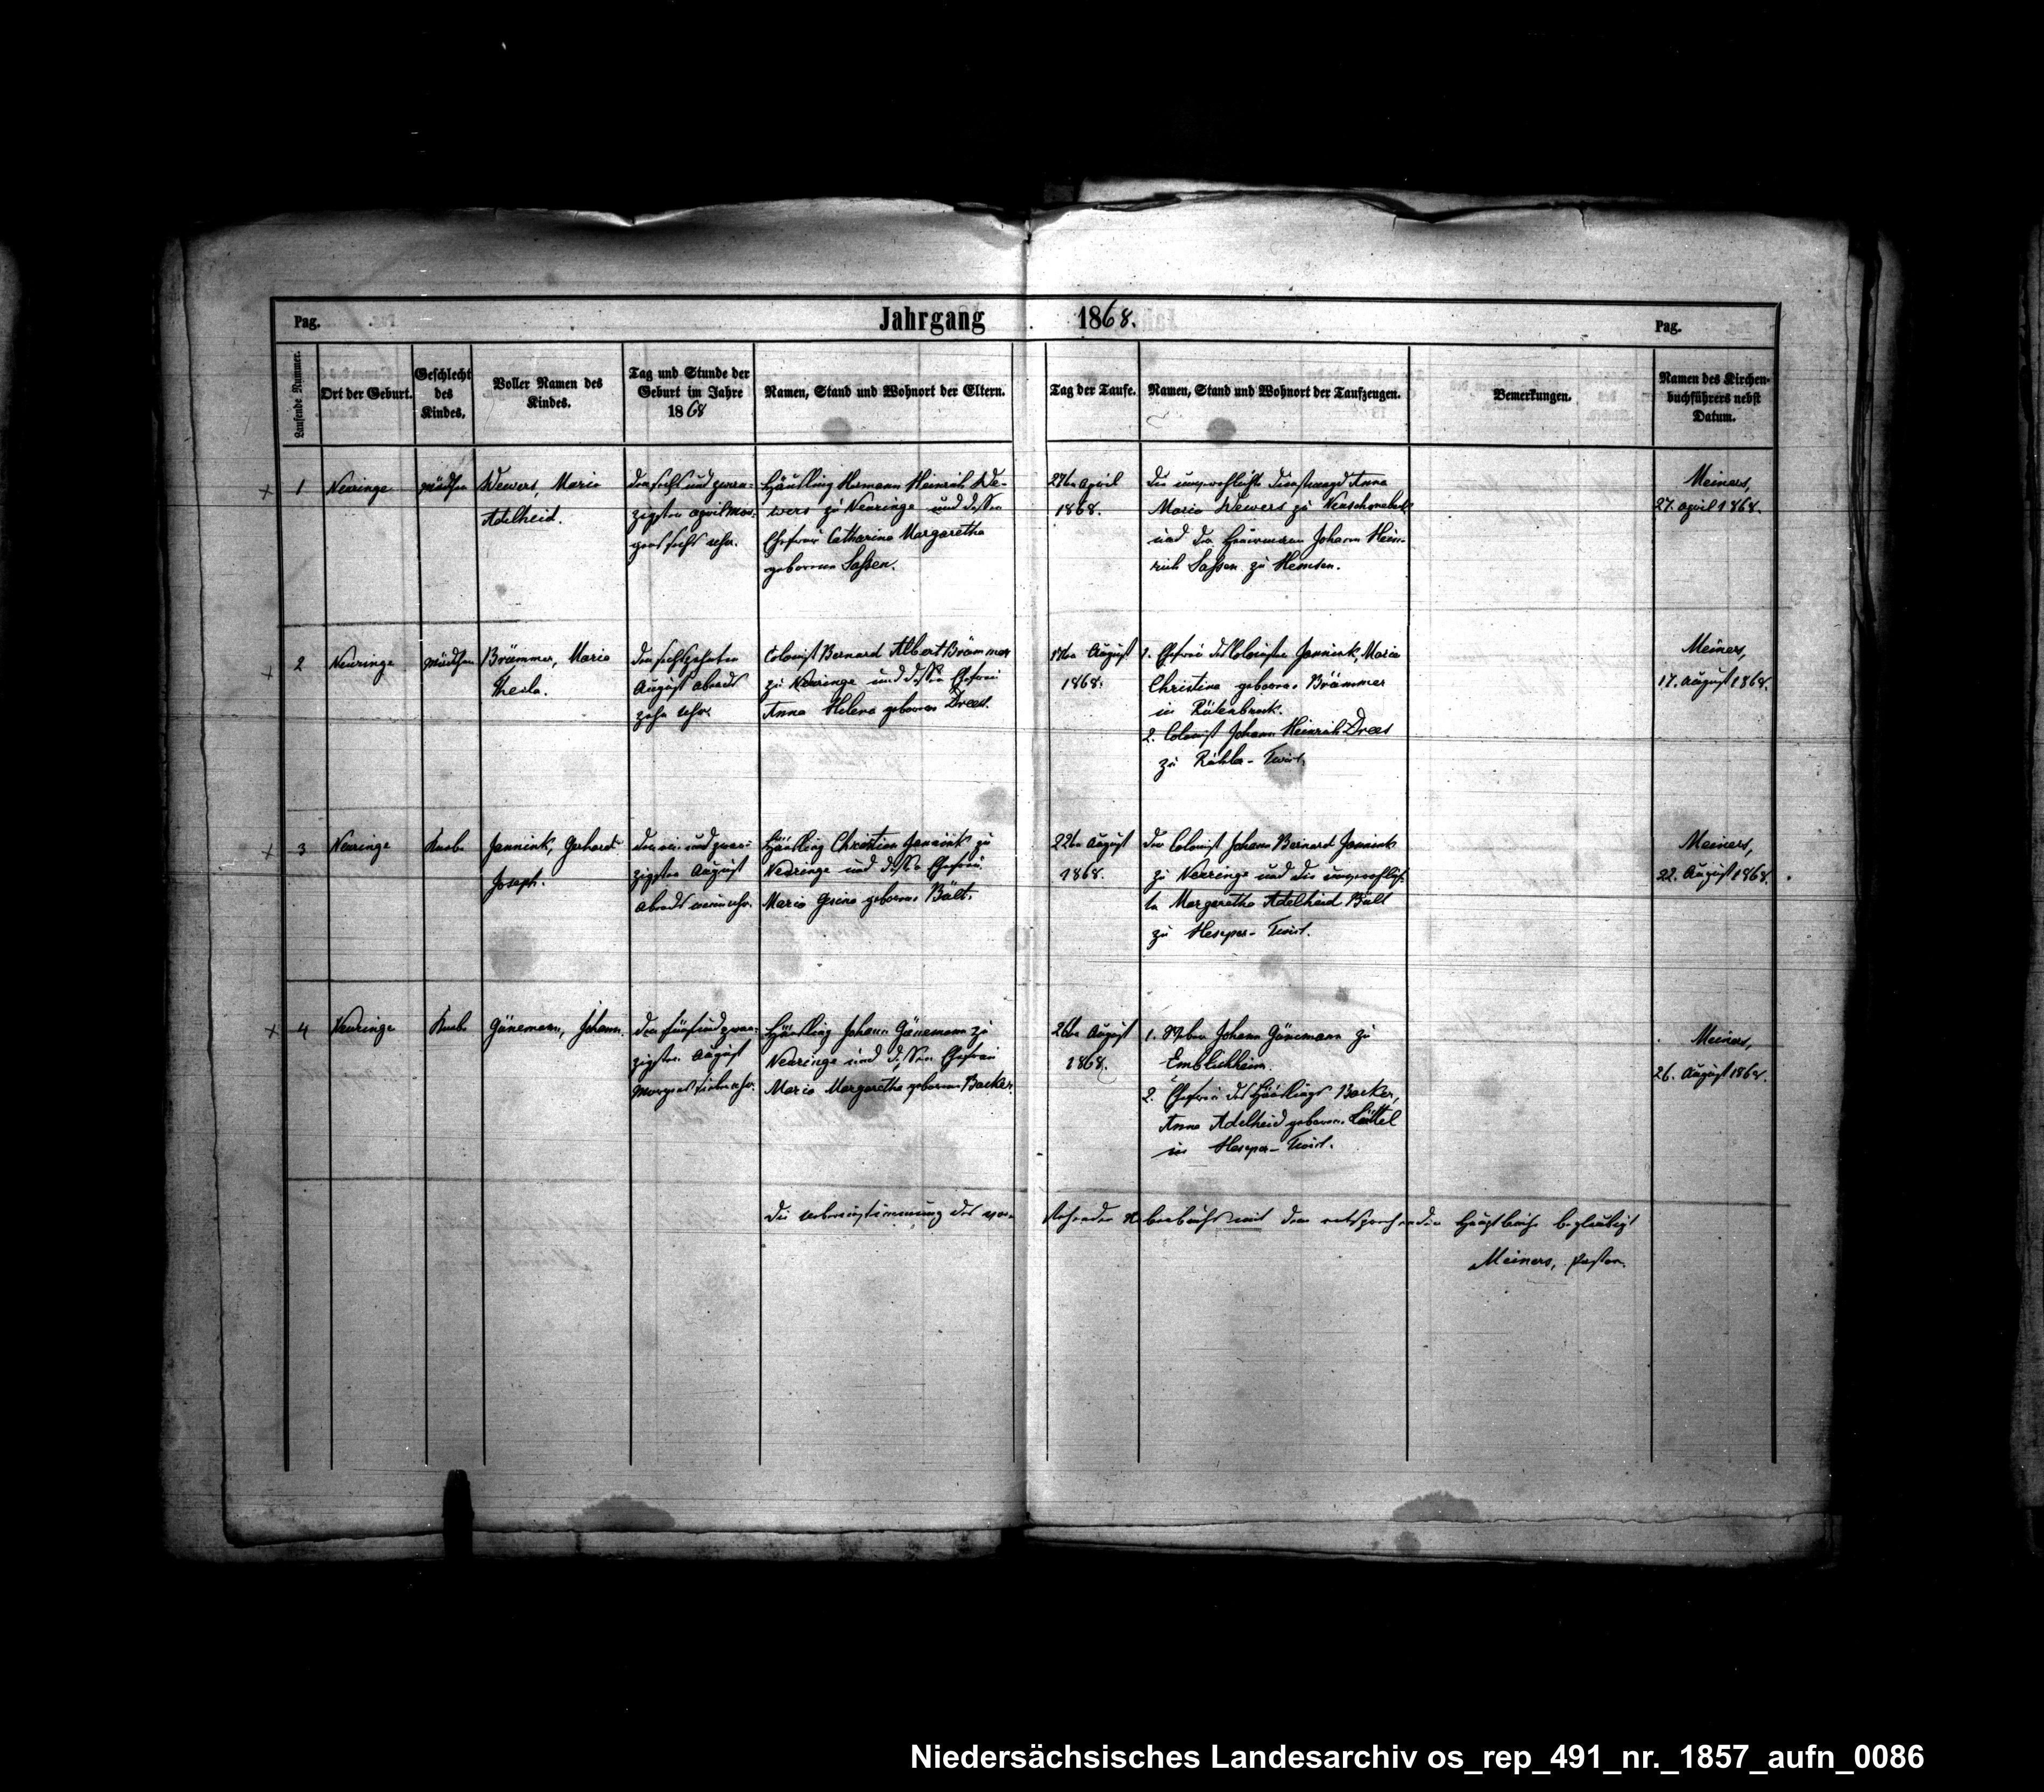 Pag.
Jahrgang 1868.
Pag.
Laufende Nummer.
Ort der Geburt.
Geschlecht
des
Kindes.
Voller Namen des
Kindes.
Tag und Stunde der
Geburt im Jahre
1868
Namen, Stand und Wohnort der Eltern.
Tag der Taufe.
Namen, Stand und Wohnort der Taufzeugen.
Bemerkungen.
Namen des Kirchen-
buchführers nebst
Datum.
+ 1
Neuringe
Mädchen
Wewers, Maria
Adelheid.
den sechs und zwan-
zigsten April Mor-
gens sechs Uhr.
Häusling Hermann Heinrich We-
wers zu Neuringe und dessen
Ehefrau Catharina Margaretha
geborene Saßen.
27ten April
1868.
die unverehelichte Dienstmagd Anna
Maria Wewers zu Neuschoonebeek
und der Johann Hein-
rich Saßen zu Hemsen.
Meiners,
27. April 1868.
+ 2
Neuringe
Mädchen
Brümmer, Maria
Thecla.
den sechszehnten
August Abends
zehn Uhr.
Colonist Bernard Albert Brümmer
zu Neuringe und dessen Ehefrau
Anna Helena geborene Drees.
17ten August
1868.
1. Ehefrau des Colonisten Jannink, Maria
Christina geborene Brümmer
in Rütenbrock.
2. Colonist Johann Heinrich Drees
zu Rühler-Twist.
Meiners,
17. August 1868.
+ 3
Neuringe
Knabe
Jannink, Gerhard
Joseph.
den ein und zwan-
zigsten August
Abends neun Uhr.
Häusling Christian Jannink zu
Neuringe und dessen Ehefrau
Maria Gesina geborene Bült.
22ten August
1868.
der Colonist Johann Bernard Jannink
zu Neuringe und die unverehelich-
te Margaretha Adelheid Bült
zu Heseper-Twist.
Meiners,
22. August 1868.
+ 4
Neuringe
Knabe
Günemann, Johann.
den fünfundzwan-
zigsten August
Morgens sieben Uhr.
Häusling Johann Günemann zu
Neuringe und dessen Ehefrau
Maria Margaretha geborene Backer.
26ten August
1868.
1. Johann Günemann zu
Emblichheim.
2. Ehefrau des Häuslings Backer,
Anna Adelheid geborene
in Heseper-Twist.
Meiners,
26. August 1868.
Die Uebereinstimmung des vor-
stehenden mit dem entsprechenden Hauptbuche beglaubigt
Meiners, Pastor.
Niedersächsisches Landesarchiv os_rep_491_nr._1857_aufn_0086